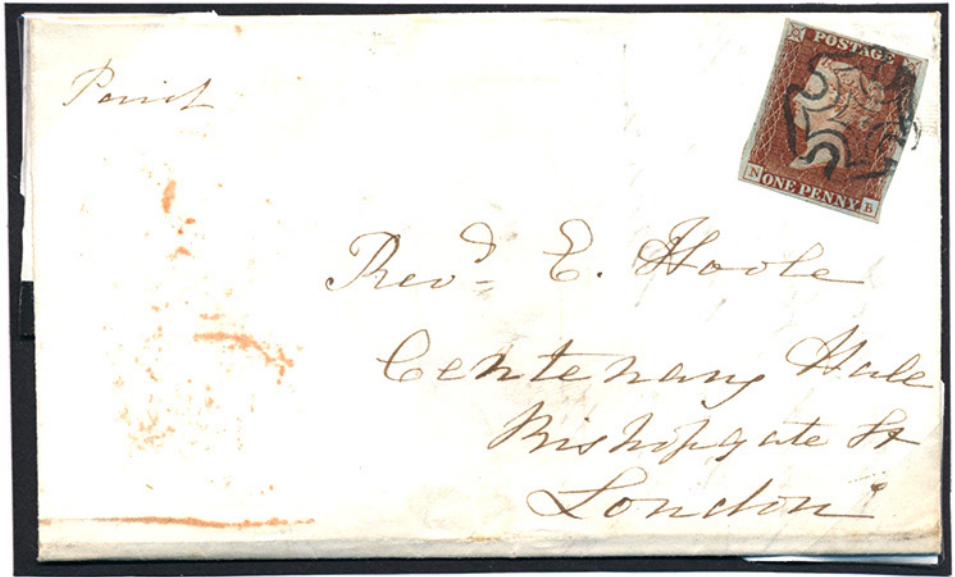 POSTAGE
N ONE PENNY B
Paid
Revd. E. Hoole
Centenary Hall
Bishopgate St
London